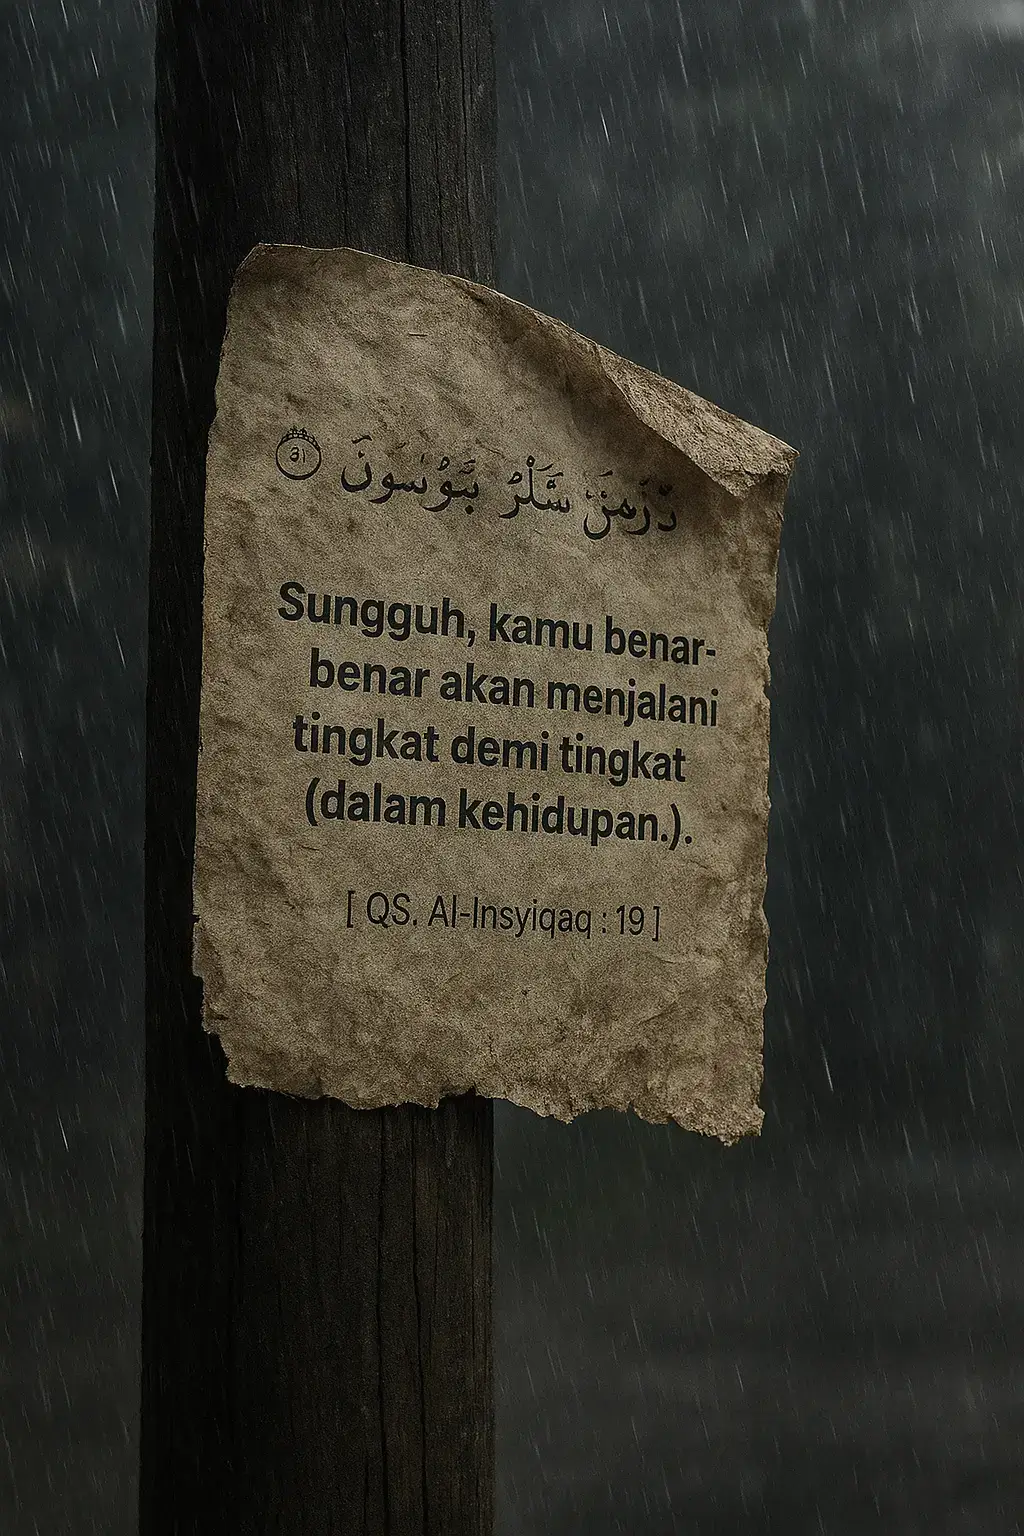 Sungguh, kamu benar-
benar akan menjalani
tingkat demi tingkat
(dalam kehidupan.).
[ QS. Al-Insyiqaq : 19 ]